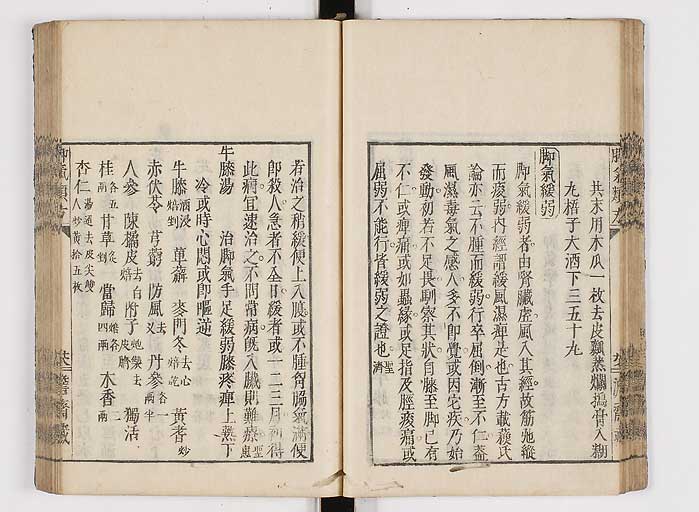 共末用木瓜一枚去皮瓤蒸爛搗膏入糊
丸梧子大酒下三五十丸
脚氣緩弱
脚氣緩弱者由腎臟虛風入其經故筋弛縱
而痿弱內經謂緩風濕痺是也古方載蘓氏
論亦云不腫而緩弱行卒屈倒漸至不仁蓋
風濕毒氣之感人多不即覺或因宅疾乃始
發動初若不足畏剛察其狀自膝至脚已有
不仁或痺痛或如蟲緣或足指及脛痠痛或
屈弱不能行皆緩弱之證也聖濟
若治之稍緩便上入腹或不腫胷腸氣滿便
即殺人急者不全日緩者或一二三月初得
此病宜速治之不問常病旣入臟則難療聖惠
牛膝湯 治脚氣手足緩弱膝疼痺上熱下
冷或時心悶或即嘔逆
牛膝酒浸焙剉 萆薢 麥門冬去心焙 黃耆炒
赤伏苓 芎藭 防風去叉 丹參各一兩半
人參 陳橘皮去白焙 附子炮裂去皮臍 獨活
桂各五 甘草炙剉 當歸焙各四兩 木香二兩
杏仁湯退去皮尖雙人炒黃拾五枚